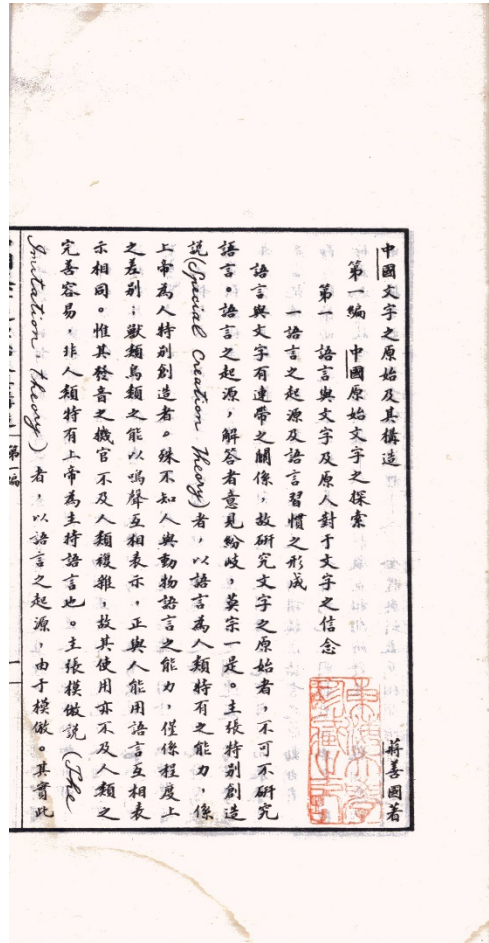 中國文字之原始及其構造
蔣善國著
第一編 中國原始文字之探索
第一 語言與文字及原人對于文字之信念
一語言之起源及語言習慣之形成
語言與文字有連帶之關係，故研究文字之原始者，不可不研究
語言。語言之起源，解答者意見紛歧，莫宗一是。主張特别創造
說(Special Creation Theory)者，以語言為人類特有之能力，係
上帝為人特别創造者。殊不知人與動物語言之能力，僅係程度上
之差别；獸類鳥類之能以鳴聲互相表示，正與人能用語言互相表
示相同。惟其發音之機官不及人類複雜，故其使用亦不及人類之
完善容易，非人類特有上帝為主持語言也。主張模倣說(The
Imitation theory)者，以語言之起源，由于模倣。其實此
第一編
一